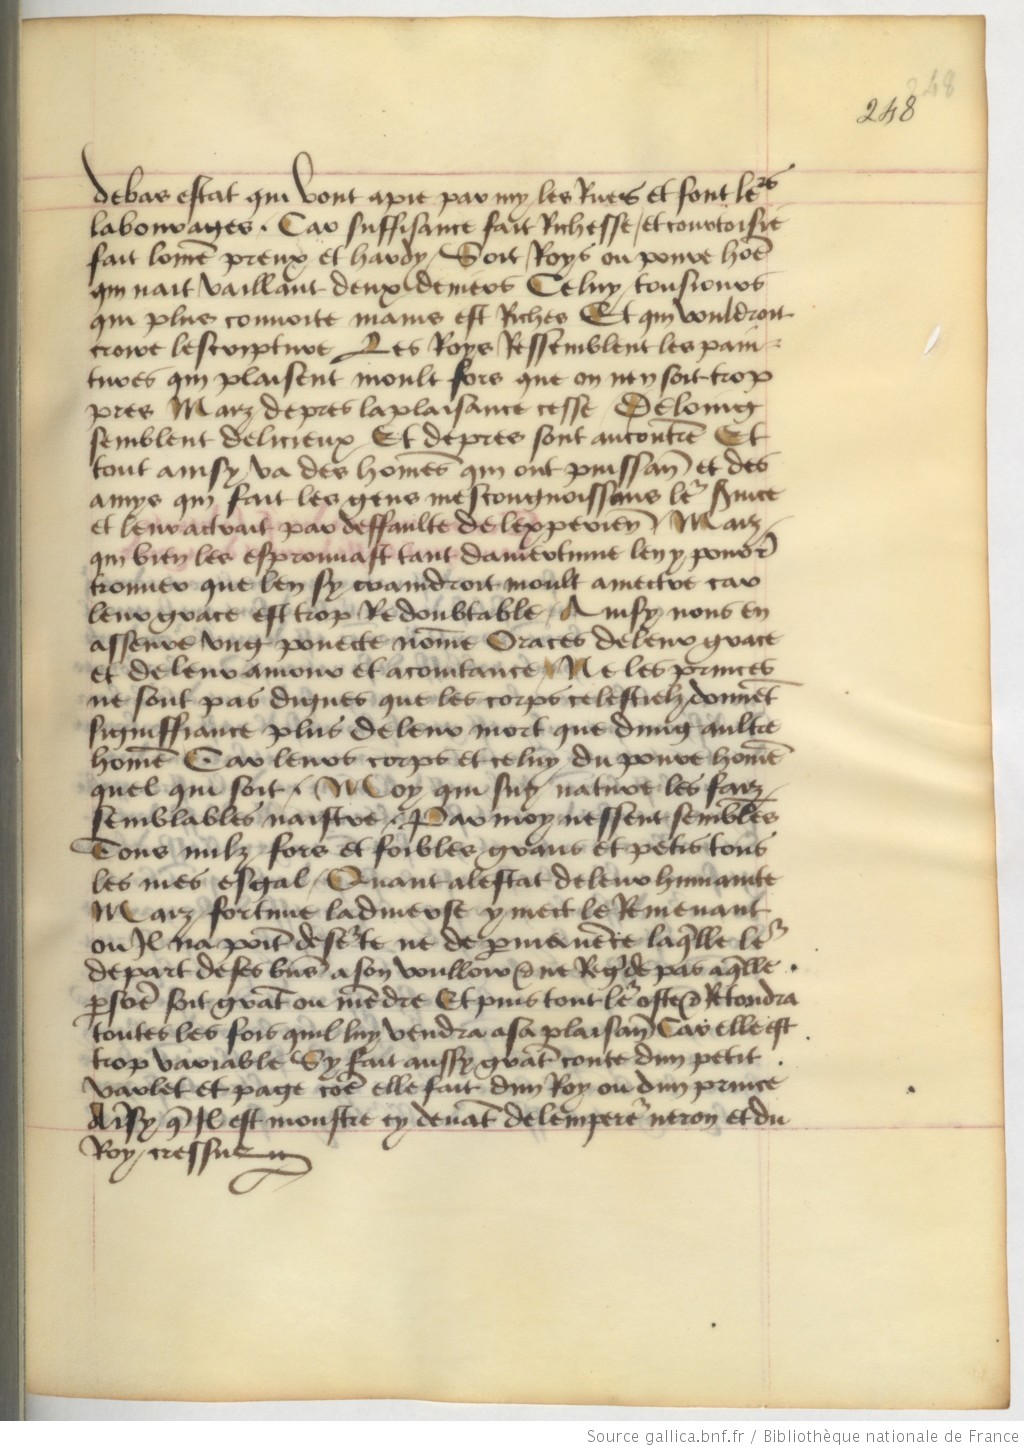 248
248
debas estat qui vont a pie par my les Rues et font le's
labourages. Car suffisance fait Richesse / et courtoisie
fait lom̄e preux et hardy / Soit Roys ou poure hōe
qui nait vaillant deux deniers Celuy tousiours
qui plus conuoite mains est Riches Et qui vouldroit
croire lescripture Les Roys Ressemblent les pain=
tures qui plaisent moult fors que on nen soit trop
pres Maiz de pres la plaisance cesse De loing
semblent delicieux Et de pres sont au contrē Et
tout ainsy va des homēs qui ont puissan̄ et des
amys qui fait les gens mescongnoissans le'
et leur actrait par deffaulte de lexperien̄ / Maiz
qui bien les esprouuast tant damertume len y pour
trouuer que len sy craindroit moult a mectre car
leur grace est trop Redoubtable / Ainsy nous en
asseure vng pouecte nōme Oraces de leur grace
et de leur amour et acointance / Ne les princes
ne sont pas dignes que les corps celestielz dōnnēt
signiffiance plus de leur mort que dung aultre
homē Car leurs corps et celuy du poure homē
quel qui soit / Moy qui suy nature les faiz
semblables naistre / Par moy nessent semblēs
Tous nulz fors et foibles grans et petis tous
les mes esgal / Quant a lestat de leur humanite
Maiz fortune la diuerse y mect le Remenant
ou Il na poīt deste ne de permanēce laq̄lle le'
depart de ses bīēs a son voulloir & ne Reg'de pas a q̄lle.
psōē soit grāt ou mēdre Et puis tout le' oste & Retondra
toutes les fois quil luy vendra a sa plaisan̄ Car elle est
trop variable Sy fait aussy grāt conte dun petit
varlet et page cōe elle fait dun Roy ou dun prince
Aīsy q̄ Il est monstre cy deuāt de lempere' neron et du
Roy cressus
Source gallica.bnf.fr / Bibliothèque nationale de France